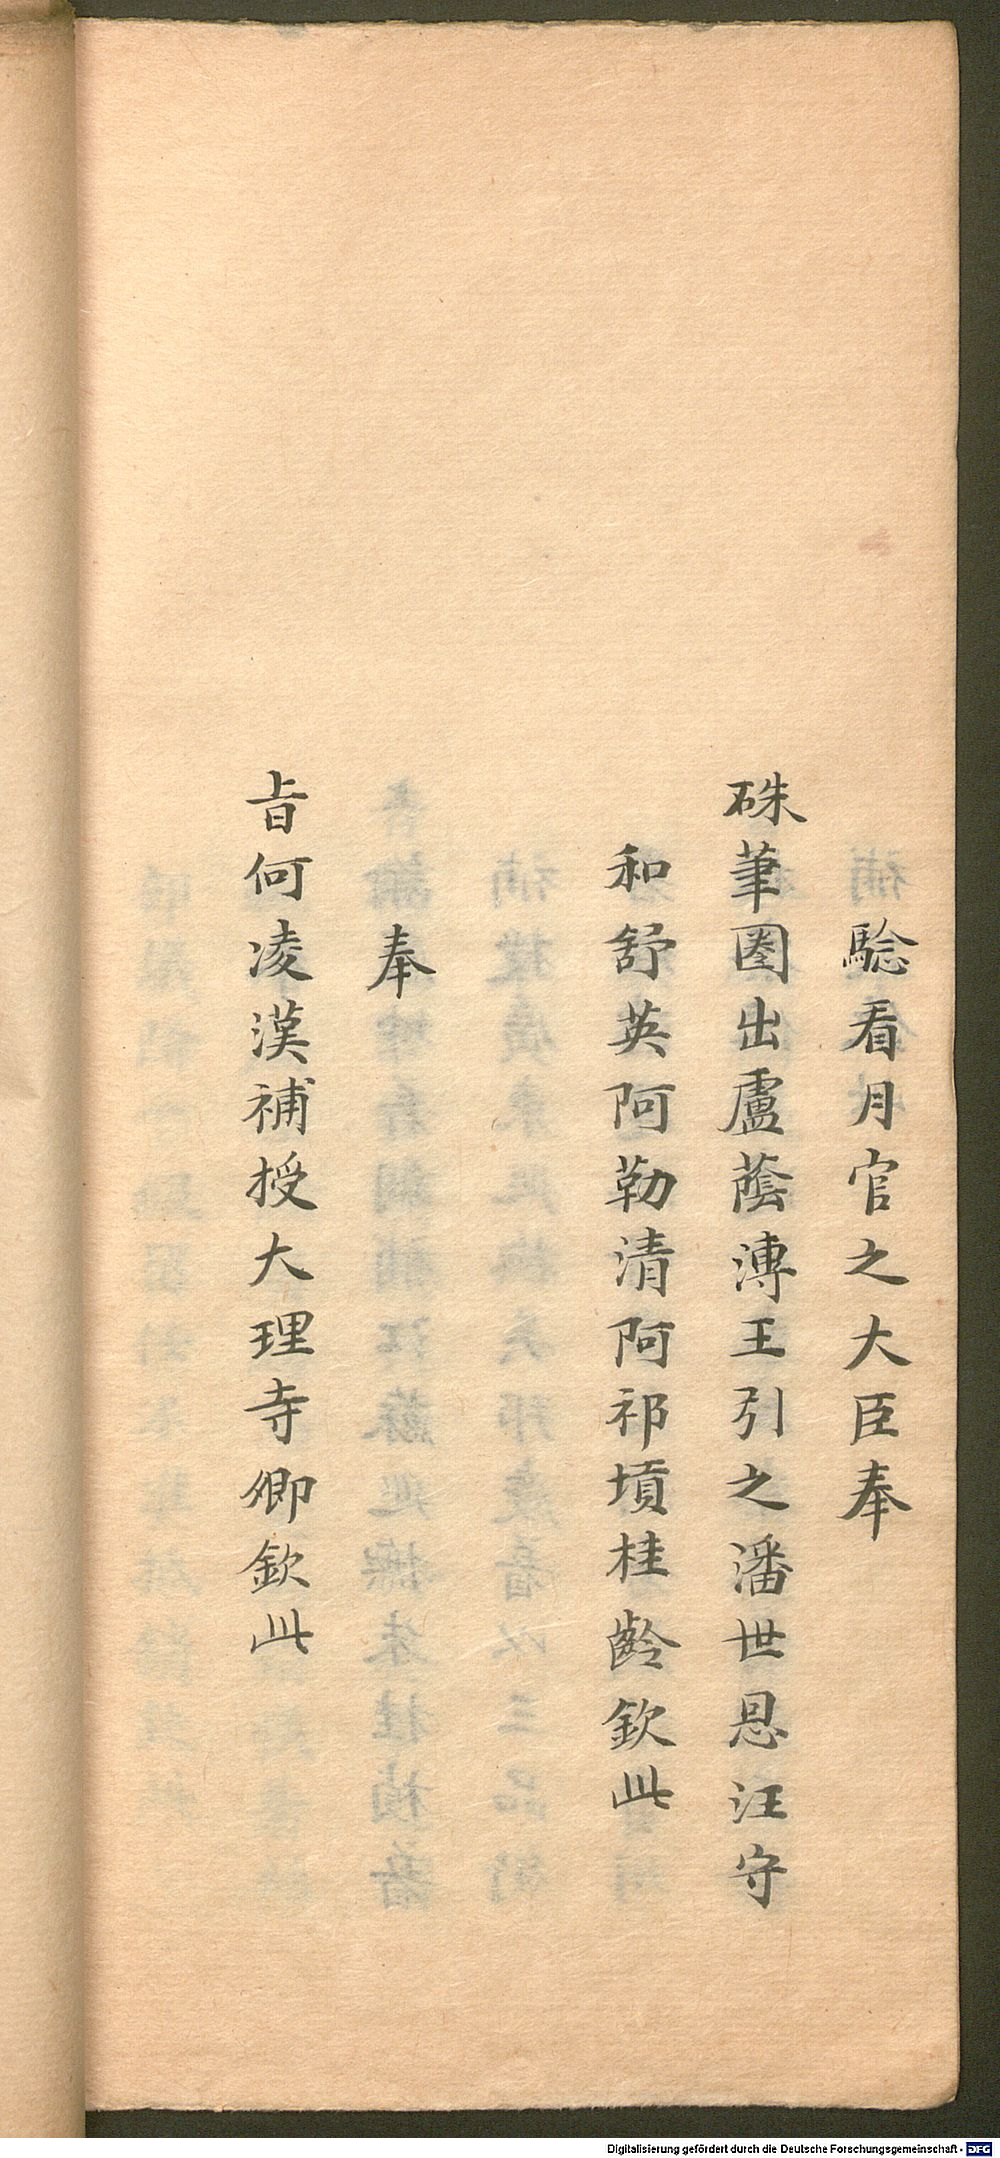 騐看月官之大臣奉
硃筆圈出盧蔭溥王引之潘世恩汪守
和舒英阿勒清阿祁墳桂齡欽此
奉
旨何凌漢補授大理寺卿欽此
Digitalisierung gefördert durch die Deutsche Forschungsgemeinschaft - DFG